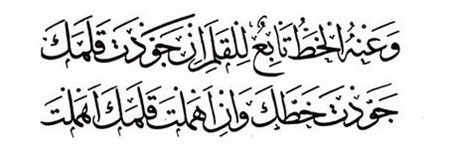 وَعَنْهُ الْخَطُّ تَابِعٌ لِلْقَلَمِ اِنْ جَوَّدْتَ قَلَمَكَ
جَوَّدْتَ خَطَّكَ وَاِنْ اَهْمَلْتَ قَلَمَكَ اَهْمَلْتَ